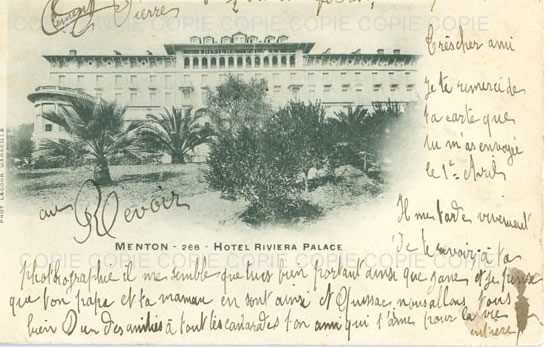 Clément Pierre
Très cher ami
Je te remerci de
ta carte que
tu m'as envoyé
le 1er Avril
au Revoir
PHOT. LACOUR, MARSEILLE
MENTON - 268 - HOTEL RIVIERA PALACE
Il me tarde vivement
De te revoir à ta
photographie il me semble que tu es bien portant ainsi que et je pense
que ton papa et ta maman en sont ainsi et nous allons tous
bien Dis des amitiés à tout les camarades ton ami qui t'aime pour la vie
entière
COPIE COPIE COPIE COPIE COPIE COPIE